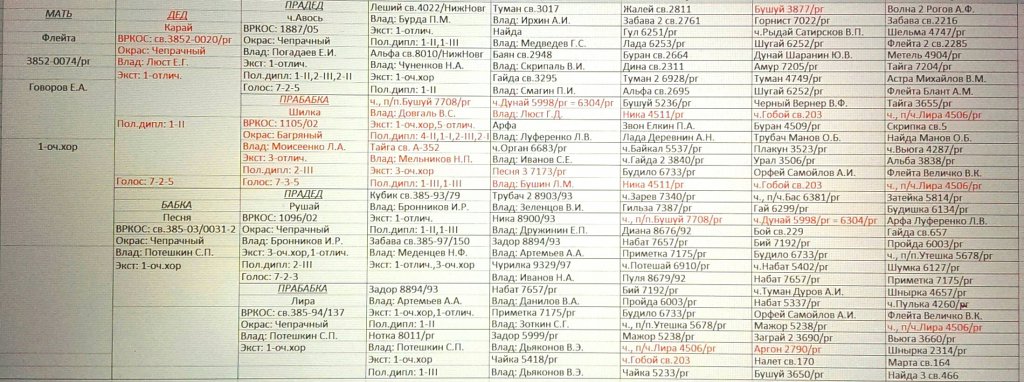 МАТЬ ДЕД ПРАДЕД Леший св.4022/НижНовг Туман св.3017 Жалей св.2811 Бушуй 3877/рг Волна 2 Рогов А.Ф.
Карай ч.Авось Влад: Бурда П.М. Влад: Ирхин А.И. Забава 2 св.2761 Горнист 7022/рг Забава 2 св.2216
Флейта ВРКОС: св.3852-0020/рг ВРКОС: 1887/05 Экст: 1-отлич. Найда Гул 6251/рг ч.Рыдай Сатирсков В.П. Шельма 4747/рг
Окрас: Чепрачный Окрас: Чепрачный Пол.дипл: 1-II,1-III Влад: Медведев Г.С. Лада 6253/рг Шугай 6252/рг Флейта 2 св.2285
3852-0074/рг Влад: Люст Е.Г. Влад: Погадаев Е.И. Альфа св.8010/НижНовг Баян св.2948 Буран св.2664 Дунай Шаранин Ю.В. Метель 4904/рг
Экст: 1-отлич. Экст: 1-отлич. Влад: Чуненков Н.А. Влад: Скрипаль В.И. Дина св.2311 Амур 7205/рг Тайга 7204/рг
Пол.дипл: 1-II,2-III,2-II Экст: 1-оч.хор Гайда св.3295 Туман 2 6928/рг Туман 4749/рг Астра Михайлов В.М.
Говоров Е.А. Голос: 7-2-5 Пол.дипл: 1-II Влад: Смагин П.И. Альфа св.2695 Шугай 6252/рг Флейта Блант А.М.
ПРАБАБКА ч., п/п.Бушуй 7708/рг ч.Дунай 5998/рг = 6304/рг Бушуй 5236/рг Черный Вернер В.Ф. Тайга 3655/рг
Шилка Влад: Довгаль В.С. Влад: Люст Г.Д. Ника 4511/рг ч.Гобой св.203 ч., п/ч.Лира 4506/рг
Пол.дипл: 1-II ВРКОС: 1105/02 Экст: 1-оч.хор,5 отлич. Арфа Звон Елкин П.А. Буран 4509/рг Скрипка св.5
Окрас: Багряный Пол.дипл: 4-II,1-I,2-III,2-I Влад: Луференко Л.В. Лада Деревнин А.Н. Трубач Манов О.Б. Найда Манов О.Б.
1-оч.хор Влад: Моисеенко Л.А. Тайга св. А-352 ч.Орган 6683/рг ч.Байкал 5537/рг Плакун 3523/рг ч.Вьюга 4287/рг
Экст: 3-отлич. Влад: Мельников Н.П. Влад: Иванов С.Е. ч.Гайда 2 3840/рг Урал 3506/рг Альба 3838/рг
Пол.дипл: 2-III Экст: 3-оч.хор Песня 3 7173/рг Будило 6733/рг Орфей Самойлов А.И. Флейта Величко В.К.
Голос: 7-2-5 Голос: 7-3-5 Пол.дипл: 1-III,1-III Влад: Бушин Л.М. Ника 4511/рг ч.Гобой св.203 ч., п/ч.Лира 4506/рг
ПРАДЕД Кубик св.385-93/79 Трубач 2 8903/93 ч.Зарев 7340/рг ч., п/ч.Бас 6381/рг Затейка 5814/рг
БАБКА Рушай Влад: Бронников И.Р. Влад: Зеленцов В.И. Гильза 7387/рг Гай 6299/рг Будишка 6134/рг
Песня ВРКОС: 1096/02 Экст: 1-отлич. Ника 8900/93 ч., п/п.Бушуй 7708/рг ч.Дунай 5998/рг = 6304/рг Арфа Луференко Л.В.
ВРКОС: св.385-03/0031-2 Окрас: Чепрачный Пол.дипл: 1-II,1-III Влад: Дружинин Е.П. Диана 8676/92 Бой св.229 Гайда св.657
Окрас: Чепрачный Влад: Бронников И.Р. Забава св.385-97/150 Задор 8894/93 Набат 7657/рг Бий 7192/рг Пройда 6003/рг
Влад: Потешкин С.П. Экст: 3-оч.хор,1-отлич. Влад: Меденцев Н.Ф. Влад: Артемьев А.А. Приметка 7175/рг Будило 6733/рг ч., п/п.Утешка 5678/рг
Экст: 1-оч.хор Пол.дипл: 2-III Экст: 1-отлич.,3-оч.хор Чурилка 9329/97 ч.Потешай 6910/рг ч.Набат 5402/рг Шумка 6127/рг
Голос: 7-2-3 Влад: Иванов Н.А. Пуля 8679/92 Набат 7657/рг Приметка 7175/рг
ПРАБАБКА Задор 8894/93 Набат 7657/рг Бий 7192/рг ч.Туман Дуров А.И. Шнырка 4657/рг
Лира Влад: Артемьев А.А. Влад: Данилов В.А. Пройда 6003/рг Набат 5337/рг ч.Пулька 4260/рг
ВРКОС: св.385-94/137 Экст: 1-оч.хор,1-отлич. Приметка 7175/рг Будило 6733/рг Орфей Самойлов А.И. Флейта Величко В.К.
Окрас: Чепрачный Пол.дипл: 1-II Влад: Зоткин С.Г. ч., п/п.Утешка 5678/рг Мажор 5238/рг ч., п/ч.Лира 4506/рг
Влад: Потешкин С.П. Нотка 8011/рг Задор 5999/рг Мажор 5238/рг Заграй 2 3690/рг Вьюга 3660/рг
Экст: 1-оч.хор Влад: Потешкин С.П. Влад: Дьяконов В.Э. ч., п/ч.Лира 4506/рг Аргон 2790/рг Шнырка 2314/рг
Экст: 1-оч.хор Чайка 5418/рг ч.Гобой св.203 Налет св.170 Марта св.164
Пол.дипл: 1-III Влад: Дьяконов В.Э. Чайка 5233/рг Бушуй 3650/рг Найда 3 св.466